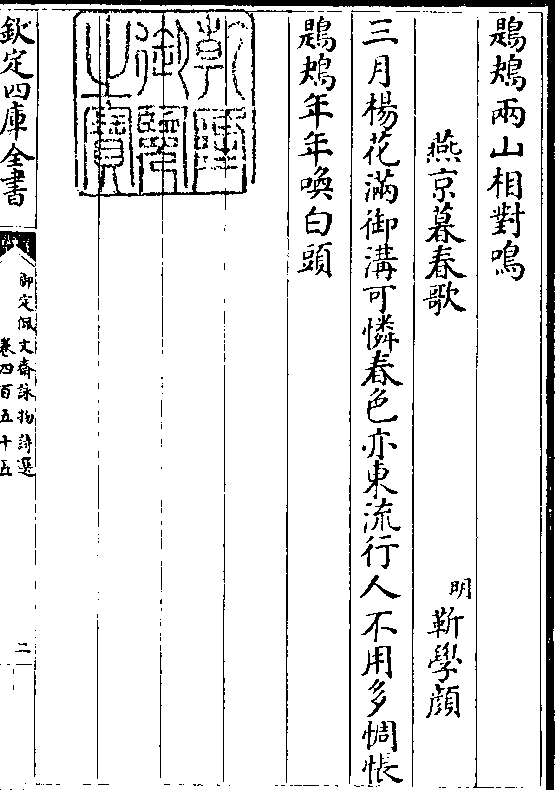 鶗鴂兩山相對鳴
燕京暮春歌 明 靳學顔
三月楊花滿御溝可憐春色亦東流行人不用多惆悵
鶗鴂年年喚白頭
乾隆御覽之寶
欽定四庫全書
御定佩文齋詠物詩選
卷四百五十五
二